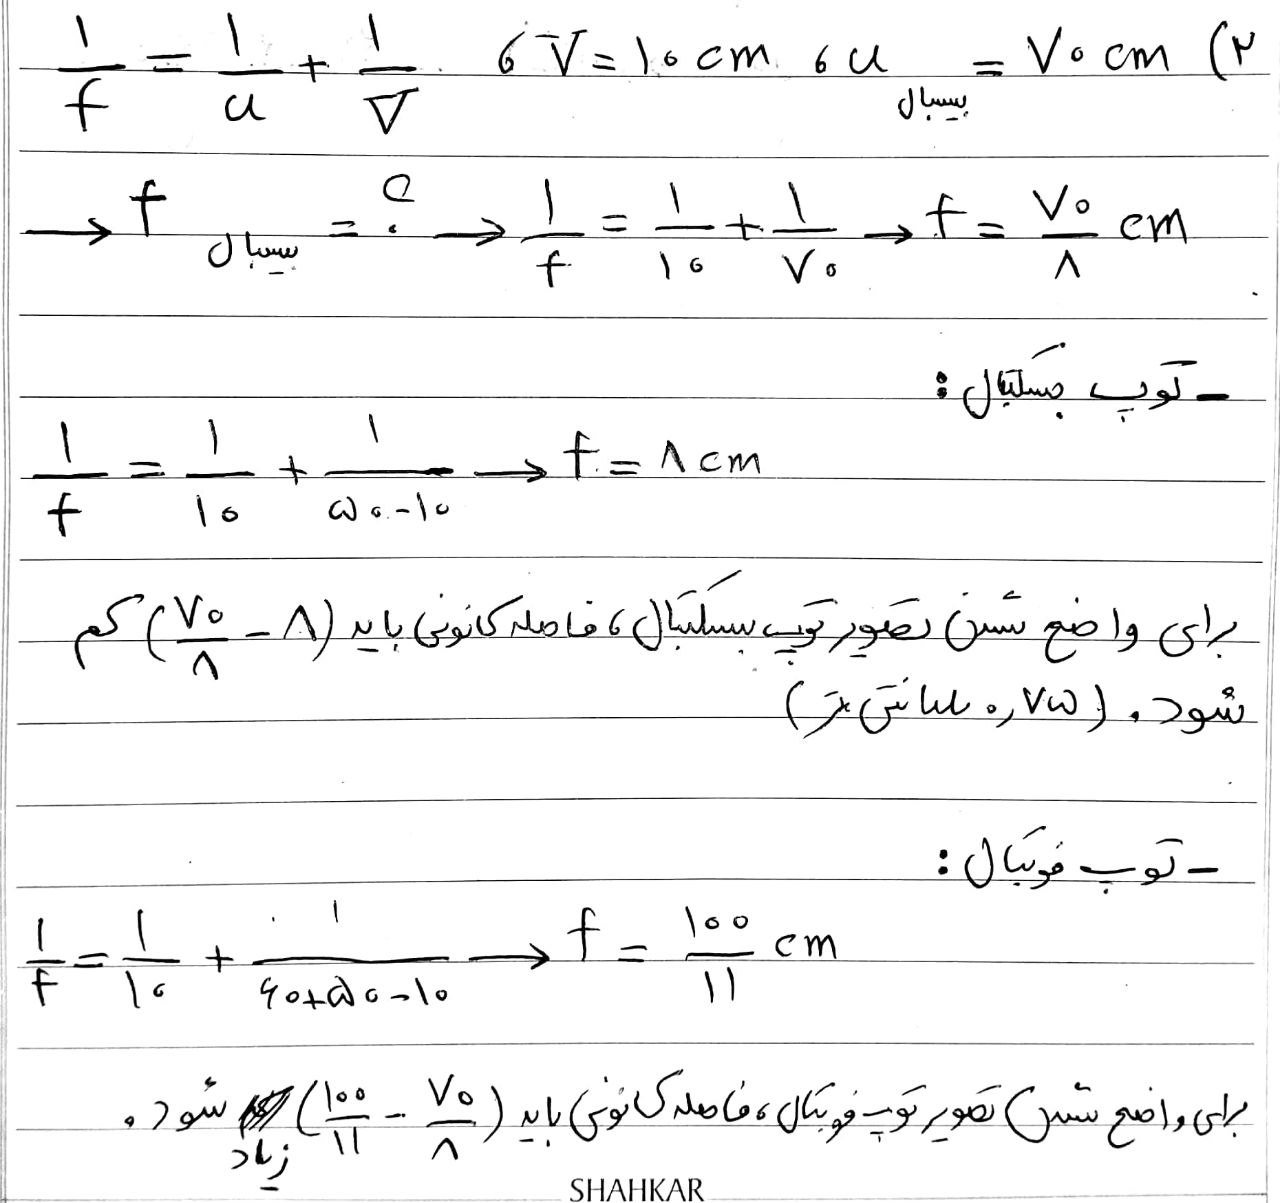 ۲) u بیسبال = ۷۰ cm ، v = ۱۰ cm ، ۱/f = ۱/u + ۱/v
→ f بیسبال = ؟ → ۱/f = ۱/۱۰ + ۱/۷۰ → f = ۷۰/۸ cm
- توپ بسکتبال :
۱/f = ۱/۱۰ + ۱/(۵۰-۱۰) → f = ۸ cm
برای واضح شدن تصویر توپ بسکتبال، فاصله کانونی باید (۷۰/۸ - ۸) کم
شود. (۰٫۷۵ سانتی متر)
- توپ فوتبال :
۱/f = ۱/۱۰ + ۱/(۶۰+۵۰-۱۰) → f = ۱۰۰/۱۱ cm
برای واضح شدن تصویر توپ فوتبال، فاصله کانونی باید (۱۰۰/۱۱ - ۷۰/۸) زیاد شود.
SHAHKAR